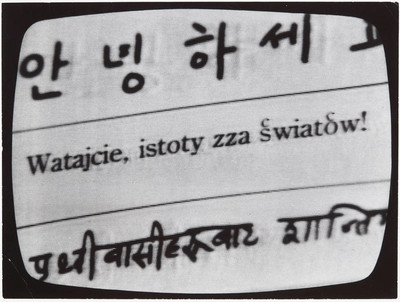 안녕하세
Watajcie, istoty zza światów!
पृथ्वीवासीहरूबाट शान्ति